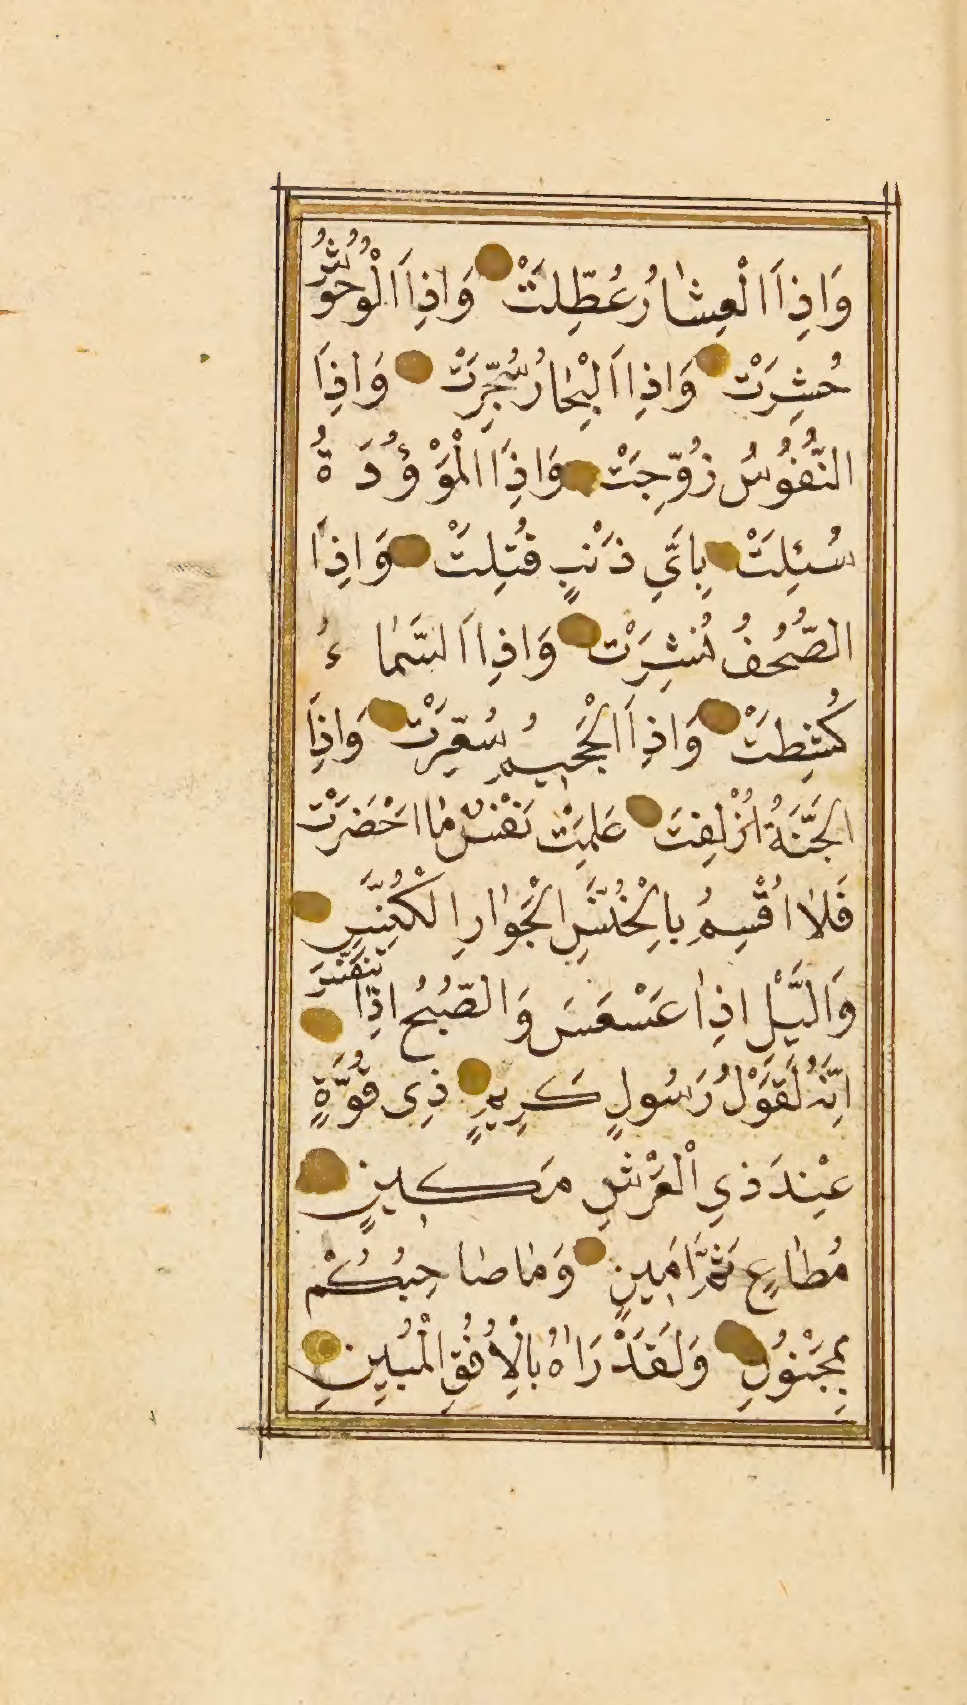 وَاِذَا الْعِشٰارُ عُطِّلَتْ وَاِذَا الْوُحُوشُ
حُشِرَتْ وَاِذَا الْبِحٰارُ سُجِّرَتْ وَاِذَا
النُّفُوسُ زُوِّجَتْ وَاِذَا الْمَوْؤُدَةُ
سُئِلَتْ بِاَىِّ ذَنْبٍ قُتِلَتْ وَاِذَا
الصُّحُفُ نُشِرَتْ وَاِذَا السَّمٰاءُ
كُشِطَتْ وَاِذَا الْجَحِيمُ سُعِّرَتْ وَاِذَا
الْجَنَّةُ اُزْلِفَتْ عَلِمَتْ نَفْسٌ مٰا اَحْضَرَتْ
فَلٰا اُقْسِمُ بِالْخُنَّسِ الْجَوٰارِ الْكُنَّسِ
وَالَّيْلِ اِذٰا عَسْعَسَ وَالصُّبْحِ اِذٰا تَنَفَّسَ
اِنَّهُ لَقَوْلُ رَسُولٍ كَرِيمٍ ذِى قُوَّةٍ
عِنْدَ ذِي الْعَرْشِ مَكِينٍ
مُطٰاعٍ ثَمَّ اَمِينٍ وَمٰا صٰاحِبُكُمْ
بِمَجْنُونٍ وَلَقَدْ رَاٰهُ بِالْاُفُقِ الْمُبِينِ